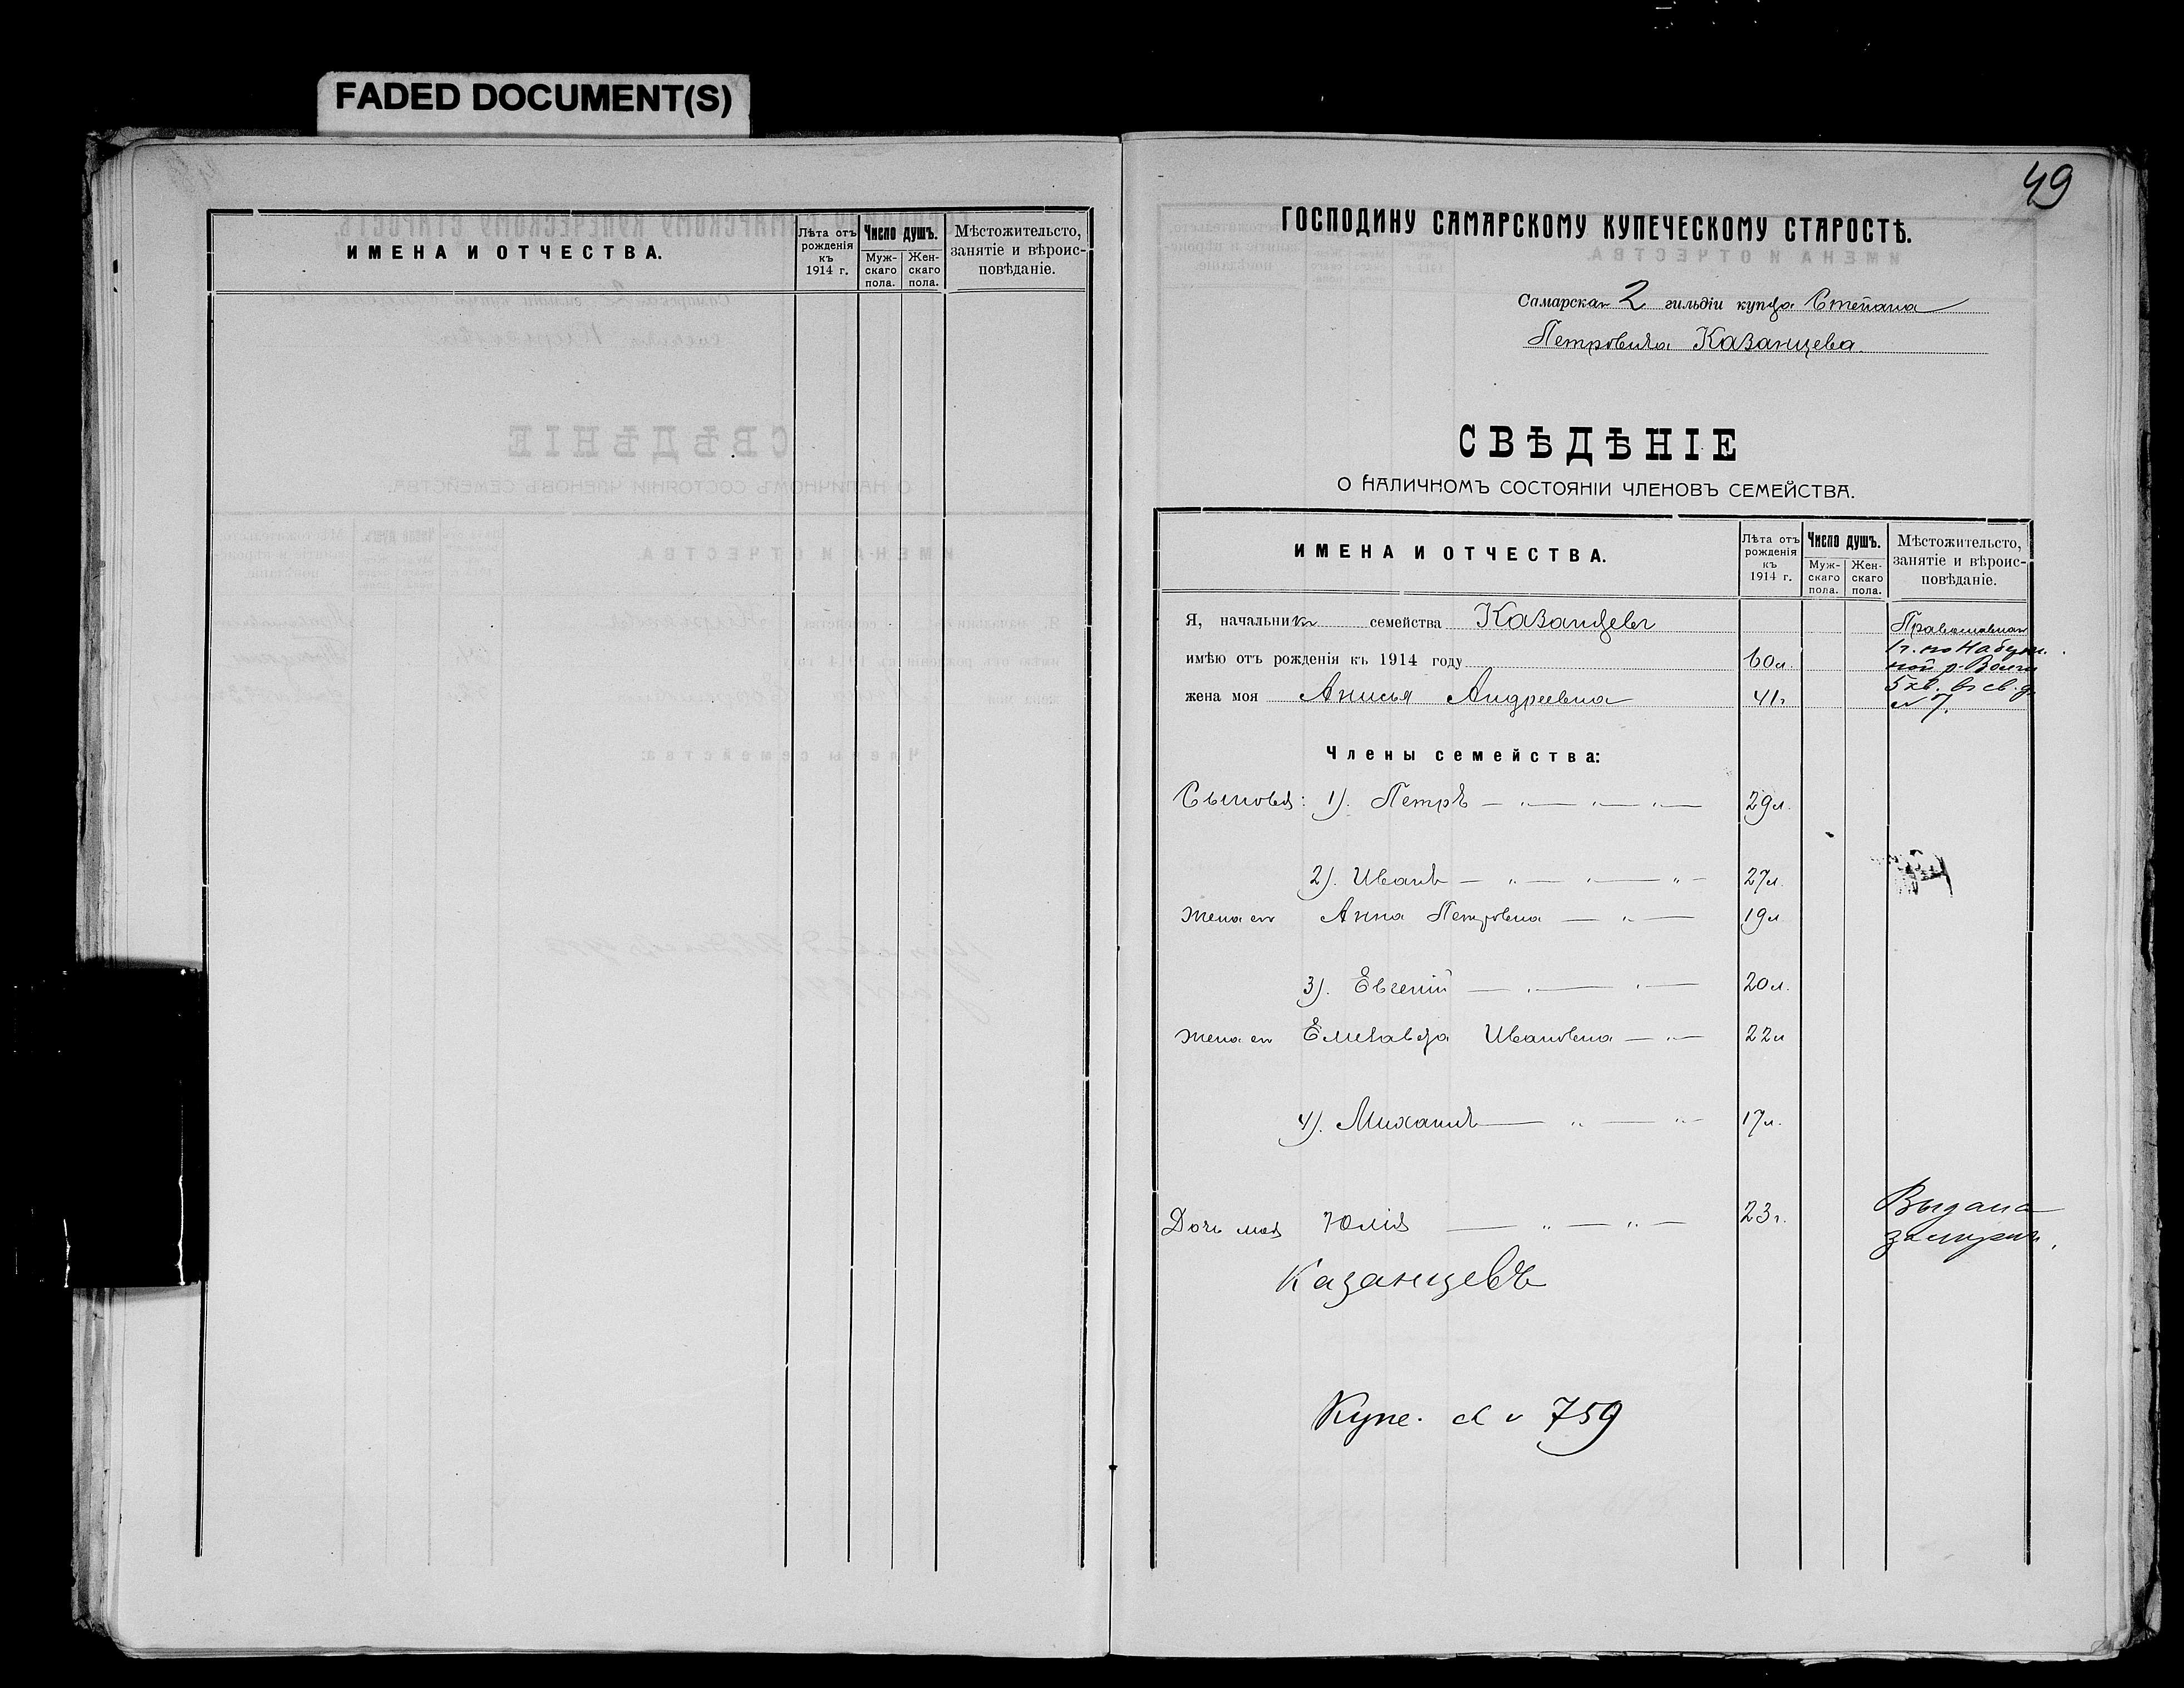 FADED DOCUMENT(S)
ИМЕНА И ОТЧЕСТВА.
Лѣта отъ рожденія къ 1914 г.
Число душъ.
Мужскаго пола.
Женскаго пола.
Мѣстожительсто, занятіе и вѣроисповѣданіе.
49
ГОСПОДИНУ САМАРСКОМУ КУПЕЧЕСКОМУ СТАРОСТѢ.
Самарскаго 2 гильдіи купца Степана
Петровича Казанцева
СВѢДѢНІЕ
О НАЛИЧНОМЪ СОСТОЯНІИ ЧЛЕНОВЪ СЕМЕЙСТВА.
ИМЕНА И ОТЧЕСТВА.
Лѣта отъ рожденія къ 1914 г.
Число душъ.
Муж-скаго пола.
Жен-скаго пола.
Мѣстожительсто, занятіе и вѣроис-повѣданіе.
Я, начальникъ семейства Казанцевъ
имѣю отъ рожденія къ 1914 году 60 л.
жена моя Анисья Андреевна 41 г.
Члены семейства:
Сыновья: 1). Петръ — „ — „ — „ — 29 л.
2). Иванъ — „ — „ — „ — 27 л.
Жена его Анна Петровна — „ — 19 л
3). Евгеній — „ — „ — 20 л.
Жена его Елизавета Ивановна — „ — 22 л
4). Михаилъ — „ — „ — 17 л.
Дочь моя Юлія — „ — „ — 23 г. Выдана замужъ.
Казанцевъ
Купе. 759